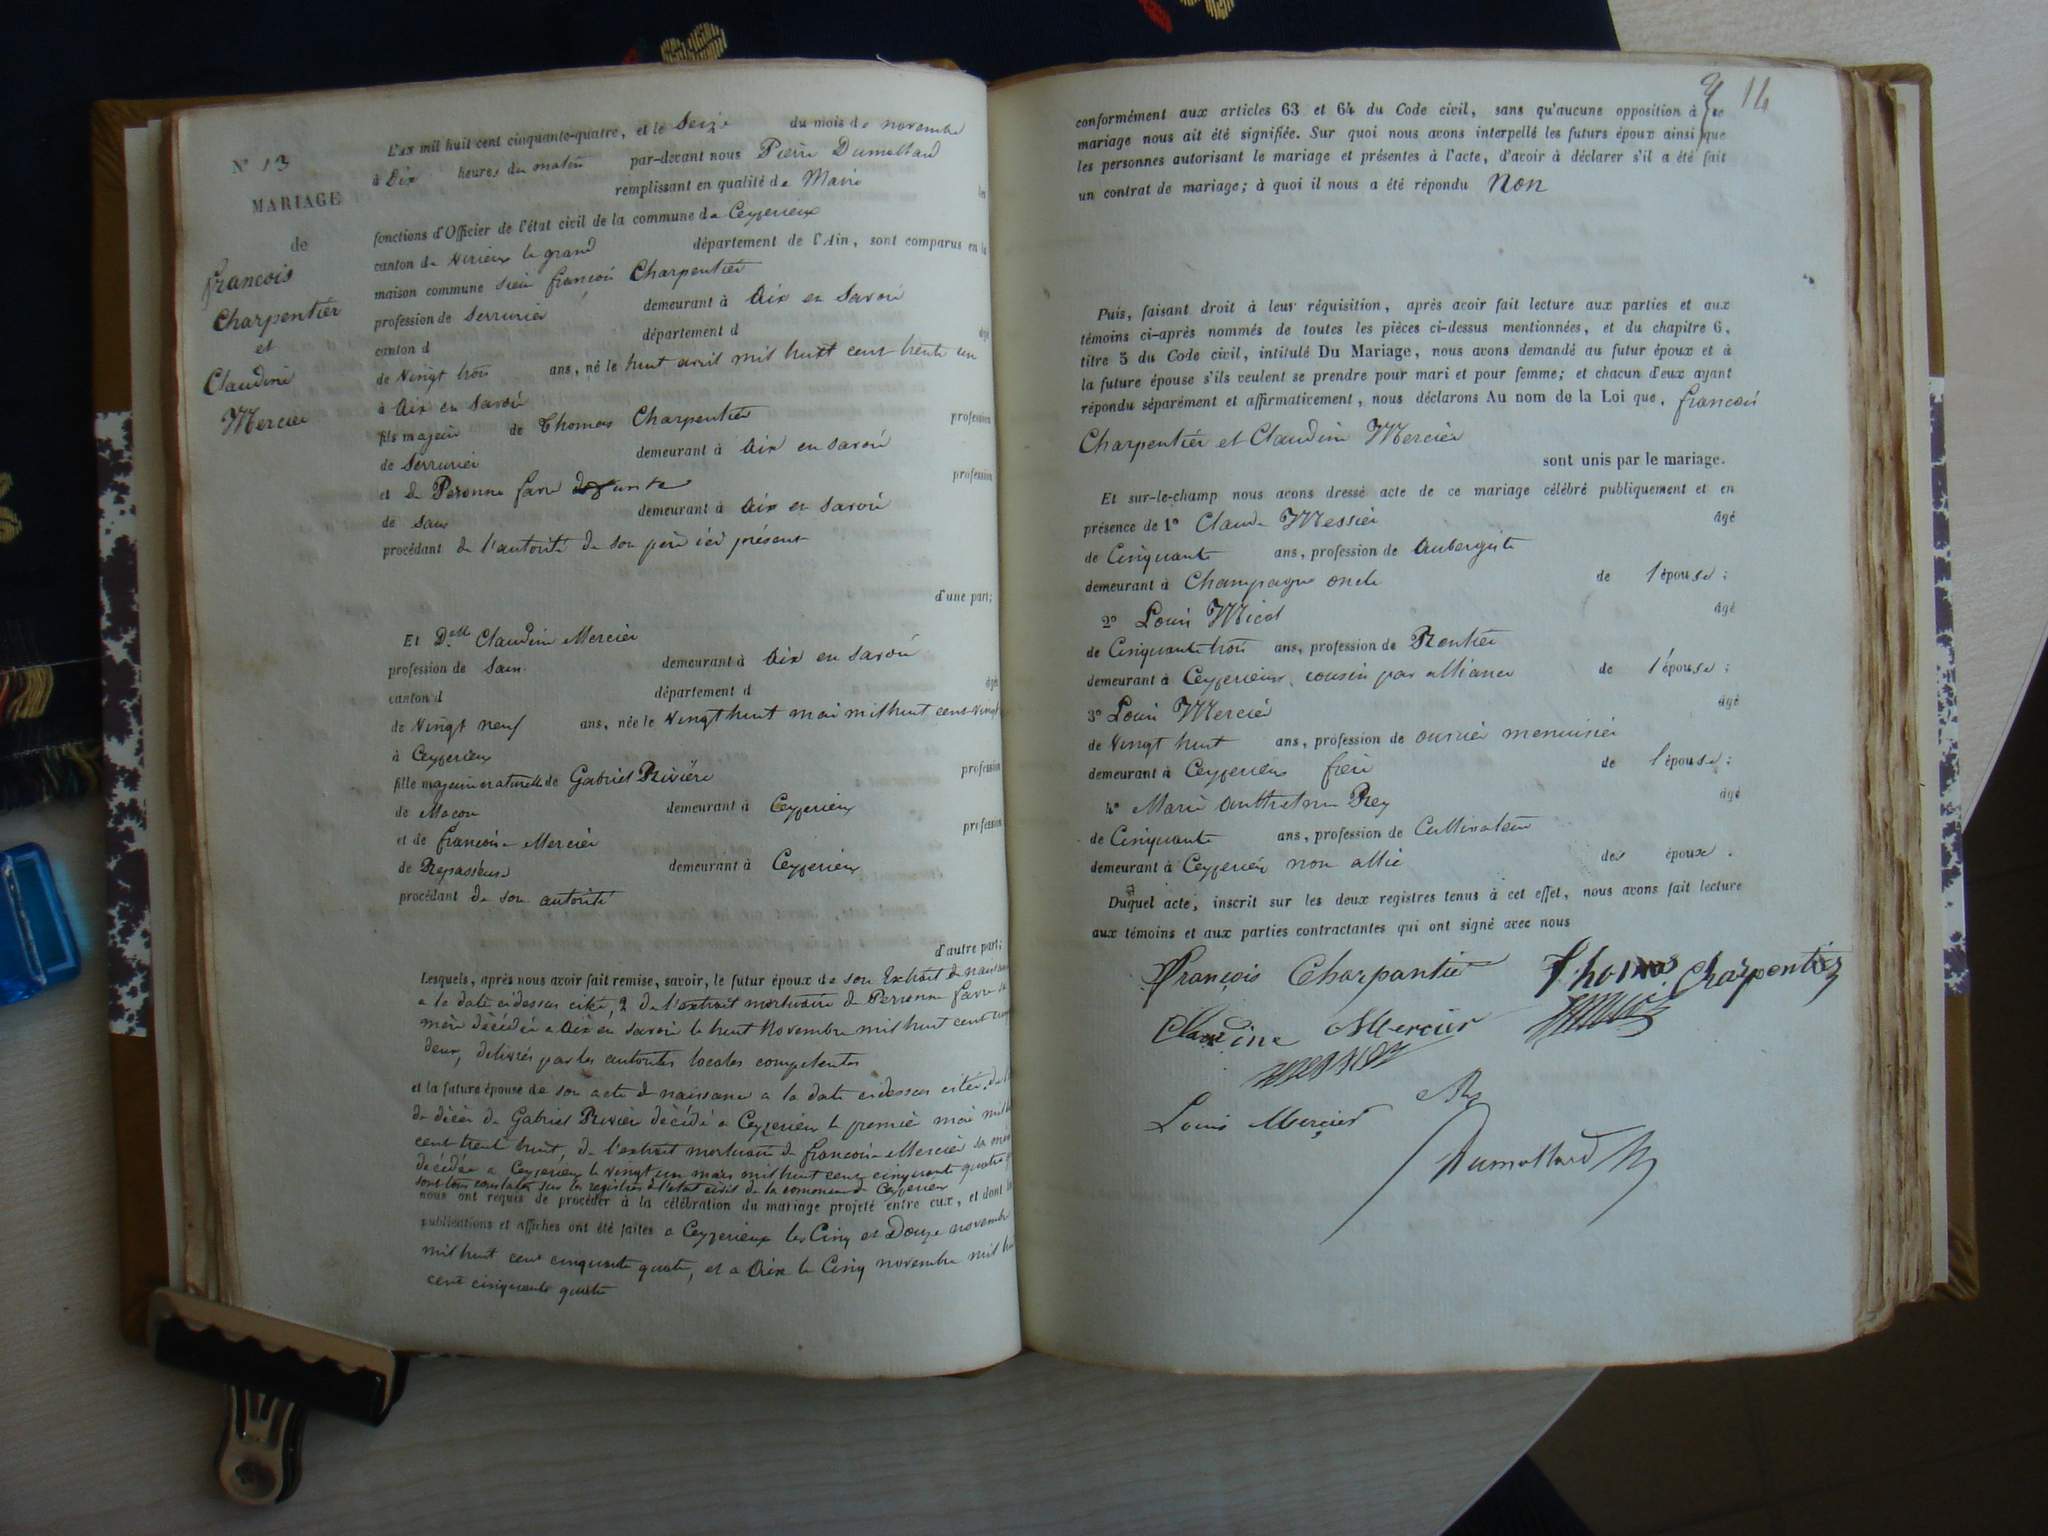 N° 13
MARIAGE
de
françois
Charpentier
et
Claudine
Mercier
L'an mil huit cent cinquante-quatre, et le Seize du mois de novembre
à Dix heures du matin par-devant nous Pierre Dumollard
remplissant en qualité de Maire les
fonctions d'Officier de l'état civil de la commune de Ceyzerieux
canton de Virieux le grand département de l'Ain, sont comparus en la
maison commune sieur françois Charpentier
profession de Serrurier demeurant à Aix en Savoie
canton d département d âgé
de Vingt trois ans, né le huit avril mil huit cent trente un
à Aix en Savoie
fils majeur de Thomas Charpentier profession
de Serrurier demeurant à Aix en savoie
et de Peronne favre defunte profession
de sans demeurant à Aix en savoie
procédant de l'autorité de son père ici présent
d'une part;
Et D.elle Claudine Mercier
profession de Sans demeurant à Aix en savoie
canton d département d âgée
de Vingt neuf ans, née le Vingt huit mai mil huit cent vingt
à Ceyzerieux
fille majeure naturelle de Gabriel Rivière profession
de Maçon demeurant à Ceyzerieux
et de françoise Mercier profession
de Repasseuse demeurant à Ceyzerieux
procédant de son autorité
d'autre part;
Lesquels, après nous avoir fait remise, savoir, le futur époux de son Extrait de naissance
a la date cidessus cité, 2 de l'extrait mortuaire de Peronne favre sa
mère décédée a Aix en savoie le huit Novembre mil huit cent
deux, delivrés par les autorités locales competentes
et la future épouse de son acte de naissance a la date cidessus citée,
de décès de Gabriel Rivière décédé a Ceyzerieux le premier mai mil
cent trente huit, de l'extrait mortuaire de françoise Mercier sa mère
decédée a Ceyzerieux le vingt un mars mil huit cent cinquante quatre
sont tous constatés sur les registres de l'etat civil de la commune de Ceyzerieux
nous ont requis de procéder à la célébration du mariage projeté entre eux, et dont les
publications et affiches ont été faites a Ceyzerieux les Cinq et Douze novembre
mil huit cent cinquante quatre, et a Aix le Cinq novembre mil huit
cent cinquante quatre
14
conformément aux articles 63 et 64 du Code civil, sans qu'aucune opposition à ce
mariage nous ait été signifiée. Sur quoi nous avons interpellé les futurs époux ainsi que
les personnes autorisant le mariage et présentes à l'acte, d'avoir à déclarer s'il a été fait
un contrat de mariage; à quoi il nous a été répondu Non
Puis, faisant droit à leur réquisition, après avoir fait lecture aux parties et aux
témoins ci-après nommés de toutes les pièces ci-dessus mentionnées, et du chapitre 6,
titre 5 du Code civil, intitulé Du Mariage, nous avons demandé au futur époux et à
la future épouse s'ils veulent se prendre pour mari et pour femme; et chacun d'eux ayant
répondu séparément et affirmativement, nous déclarons Au nom de la Loi que, françois
Charpentier et Claudine Mercier
sont unis par le mariage.
Et sur-le-champ nous avons dressé acte de ce mariage célébré publiquement et en
présence de 1° Claude Messier âgé
de Cinquante ans, profession de Aubergiste
demeurant à Champagne oncle de l'épouse;
2° Louis Micol âgé
de Cinquante trois ans, profession de Rentier
demeurant à Ceyzerieux, cousin par alliance de l'épouse;
3° Louis Mercier âgé
de Vingt huit ans, profession de ouvrier menuisier
demeurant à Ceyzerieux frère de l'épouse;
4° Marie Rey âgé
de Cinquante ans, profession de Cultivateur
demeurant à Ceyzerieu non allié des époux.
Duquel acte, inscrit sur les deux registres tenus à cet effet, nous avons fait lecture
aux témoins et aux parties contractantes qui ont signé avec nous
François Charpantier Thomas Charpentier
Claudine Mercier
Louis Mercier Rey
Dumollard